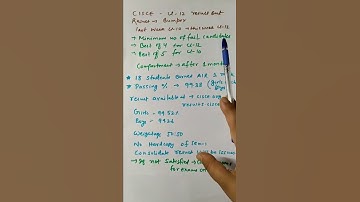 CISCE - cl-12 result out
Result is Bumper
last week cl-10 → this week cl-12
→ Minimum no of fail candidates
→ Best of 4 for cl-12
→ Best of 5 for cl-10
Compartment → after 1 month
* 18 students earned AIR 1
* Passing % → 99.38 (Girls
result available at → cisce.org
results.cisce
Girls - 99.52%
Boys - 99.26
Weightage 50:50
No Hardcopy of Sem-1
Consolidate result will be issued
→ If not satisfied →
for exams